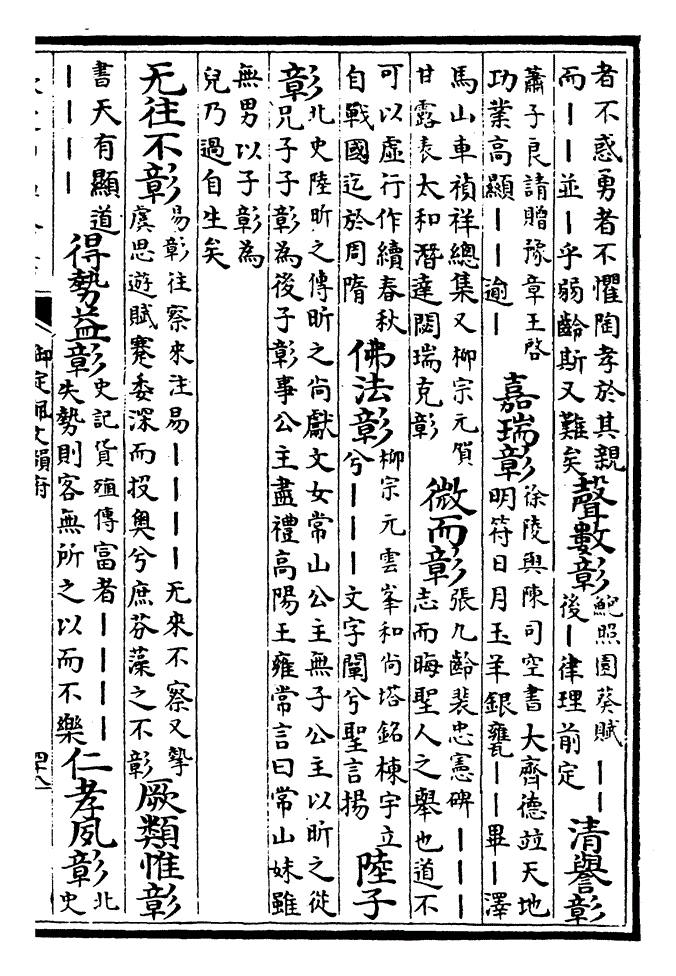 者不惑勇者不懼陶孝於其親
而丨丨並丨乎弱齡斯又難矣
聲數彰
鮑照園葵賦丨丨
後丨律理前定
清譽彰
蕭子良請贈豫章王啓
功業高顯丨丨逾丨
嘉瑞彰
徐陵與陳司空書大齊德竝天地
明符日月玉羊銀甕丨丨畢丨澤
馬山車禎祥總集又柳宗元賀
甘露表太和潛達闕瑞克彰
微而彰
張九齡裴忠憲碑丨丨丨
志而晦聖人之舉也道不
可以虛行作續春秋
自戰國迄於周隋
佛法彰
柳宗元雲峯和尚塔銘棟宇立
兮丨丨丨文字闡兮聖言揚
陸子
彰
北史陸昕之傳昕之尚獻文女常山公主無子公主以昕之從
兄子子彰為後子彰事公主盡禮高陽王雍常言曰常山妹雖
無男以子彰為
兒乃過自生矣
无往不彰
易彰往察來注易丨丨丨丨无來不察又摯
虞思遊賦蹇委深而投奧兮庶芬藻之不彰
厥類惟彰
書天有顯道
丨丨丨丨
得勢益彰
史記貨殖傳富者丨丨丨丨
失勢則客無所之以而不樂
仁孝夙彰
北
史
御定佩文韻府